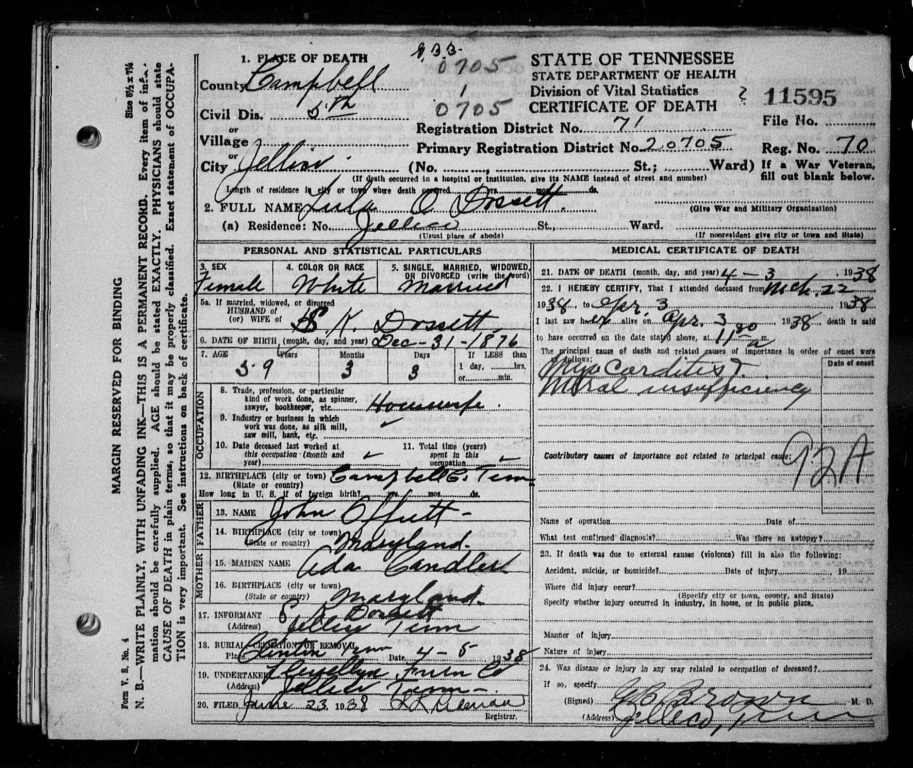 Size 8½ x 7¼
MARGIN RESERVED FOR BINDING
N. B.—WRITE PLAINLY, WITH UNFADING INK—THIS IS A PERMANENT RECORD. Every item of
mation should be carefully supplied. AGE should be stated EXACTLY. PHYSICIANS should state
CAUSE OF DEATH in plain terms, so that it may be properly classified. Exact statement of OCCUPA-
TION is very important. See instructions on back of certificate.
Form V. S. No. 4
1. PLACE OF DEATH
County Campbell
Civil Dis. 5th
or
Village
or
City Jellico (No. St.; Ward)
0705
1
0705
STATE OF TENNESSEE
STATE DEPARTMENT OF HEALTH
Division of Vital Statistics
CERTIFICATE OF DEATH
2 11595
File No.
Registration District No. 71
Primary Registration District No. 20705
Reg. No. 70
If a War Veteran, fill out blank below.
(If death occurred in a hospital or institution, give its NAME instead of street and number)
Length of residence in city or town where death occurred yrs. mos. ds.
2. FULL NAME Lula O Dossett
(Give War and Military Organization)
(a) Residence: No. Jellico St., Ward.
(Usual place of abode) (If nonresident give city or town and State)
PERSONAL AND STATISTICAL PARTICULARS
3. SEX Female
4. COLOR OR RACE White
5. SINGLE, MARRIED, WIDOWED, OR DIVORCED (write the word) Married
5a. If married, widowed, or divorced
HUSBAND of
(or) WIFE of K. Dossett
6. DATE OF BIRTH (month, day, and year) Dec-31-1876
7. AGE Years Months Days If LESS than
59 3 3 1 day, hrs.
or min.
OCCUPATION
8. Trade, profession, or particular
kind of work done, as spinner,
sawyer, bookkeeper, etc. Housewife
9. Industry or business in which
work was done, as silk mill,
saw mill, bank, etc.
10. Date deceased last worked at
this occupation (month and
year)
11. Total time (years)
spent in this
occupation
12. BIRTHPLACE (city or town) Campbell C. Tenn
(State or country)
How long in U. S. if of foreign birth? yrs. mos. ds.
FATHER
13. NAME John Offutt
14. BIRTHPLACE (city or town)
(State or country) Maryland
MOTHER
15. MAIDEN NAME Ada Candler
16. BIRTHPLACE (city or town)
(State or country) Maryland
17. INFORMANT K Dossett
(Address) Jellico Tenn
18. BURIAL, CREMATION OR REMOVAL
Place Clinton Tenn Date 4-5 1938
19. UNDERTAKER Llewellyn Furn Co
(Address) Jellico Tenn
20. FILED June 23 1938
Registrar.
MEDICAL CERTIFICATE OF DEATH
21. DATE OF DEATH (month, day, and year) 4-3, 1938
22. I HEREBY CERTIFY, That I attended deceased from Mch. 22
1938 to Apr. 3 1938
I last saw her alive on Apr. 3 1938 death is said
to have occurred on the date stated above, at 11 30 a m.
The principal cause of death and related causes of importance in order of onset were
as follows: Date of onset
Myocarditis
Mitral insufficiency
Contributory causes of importance not related to principal cause:
92A
Name of operation Date of
What test confirmed diagnosis? Was there an autopsy?
23. If death was due to external causes (violence) fill in also the following:
Accident, suicide, or homicide? Date of injury 19
Where did injury occur?
(Specify city or town, county, and State)
Specify whether injury occurred in industry, in home, or in public place.
Manner of injury
Nature of injury
24. Was disease or injury in any way related to occupation of deceased?
If so, specify
(Signed) G B Brown M. D.
(Address) Jellico, Tenn